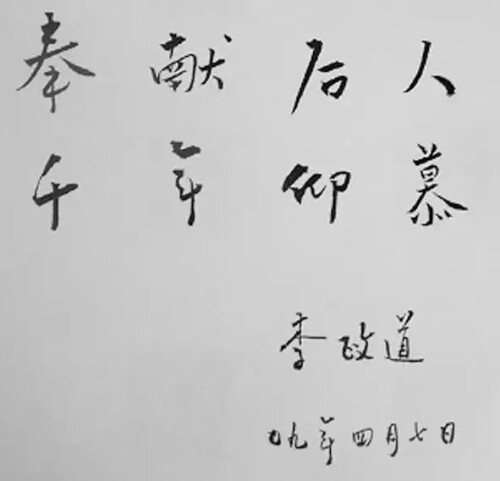 奉献后人
千年仰慕
李政道
七九年四月七日